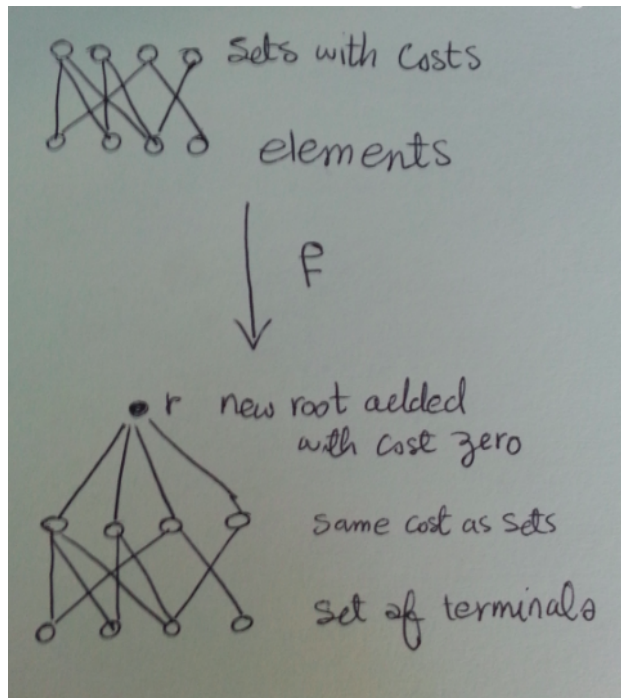 sets with costs
elements
f
r new root added
with cost zero
same cost as sets
set of terminals